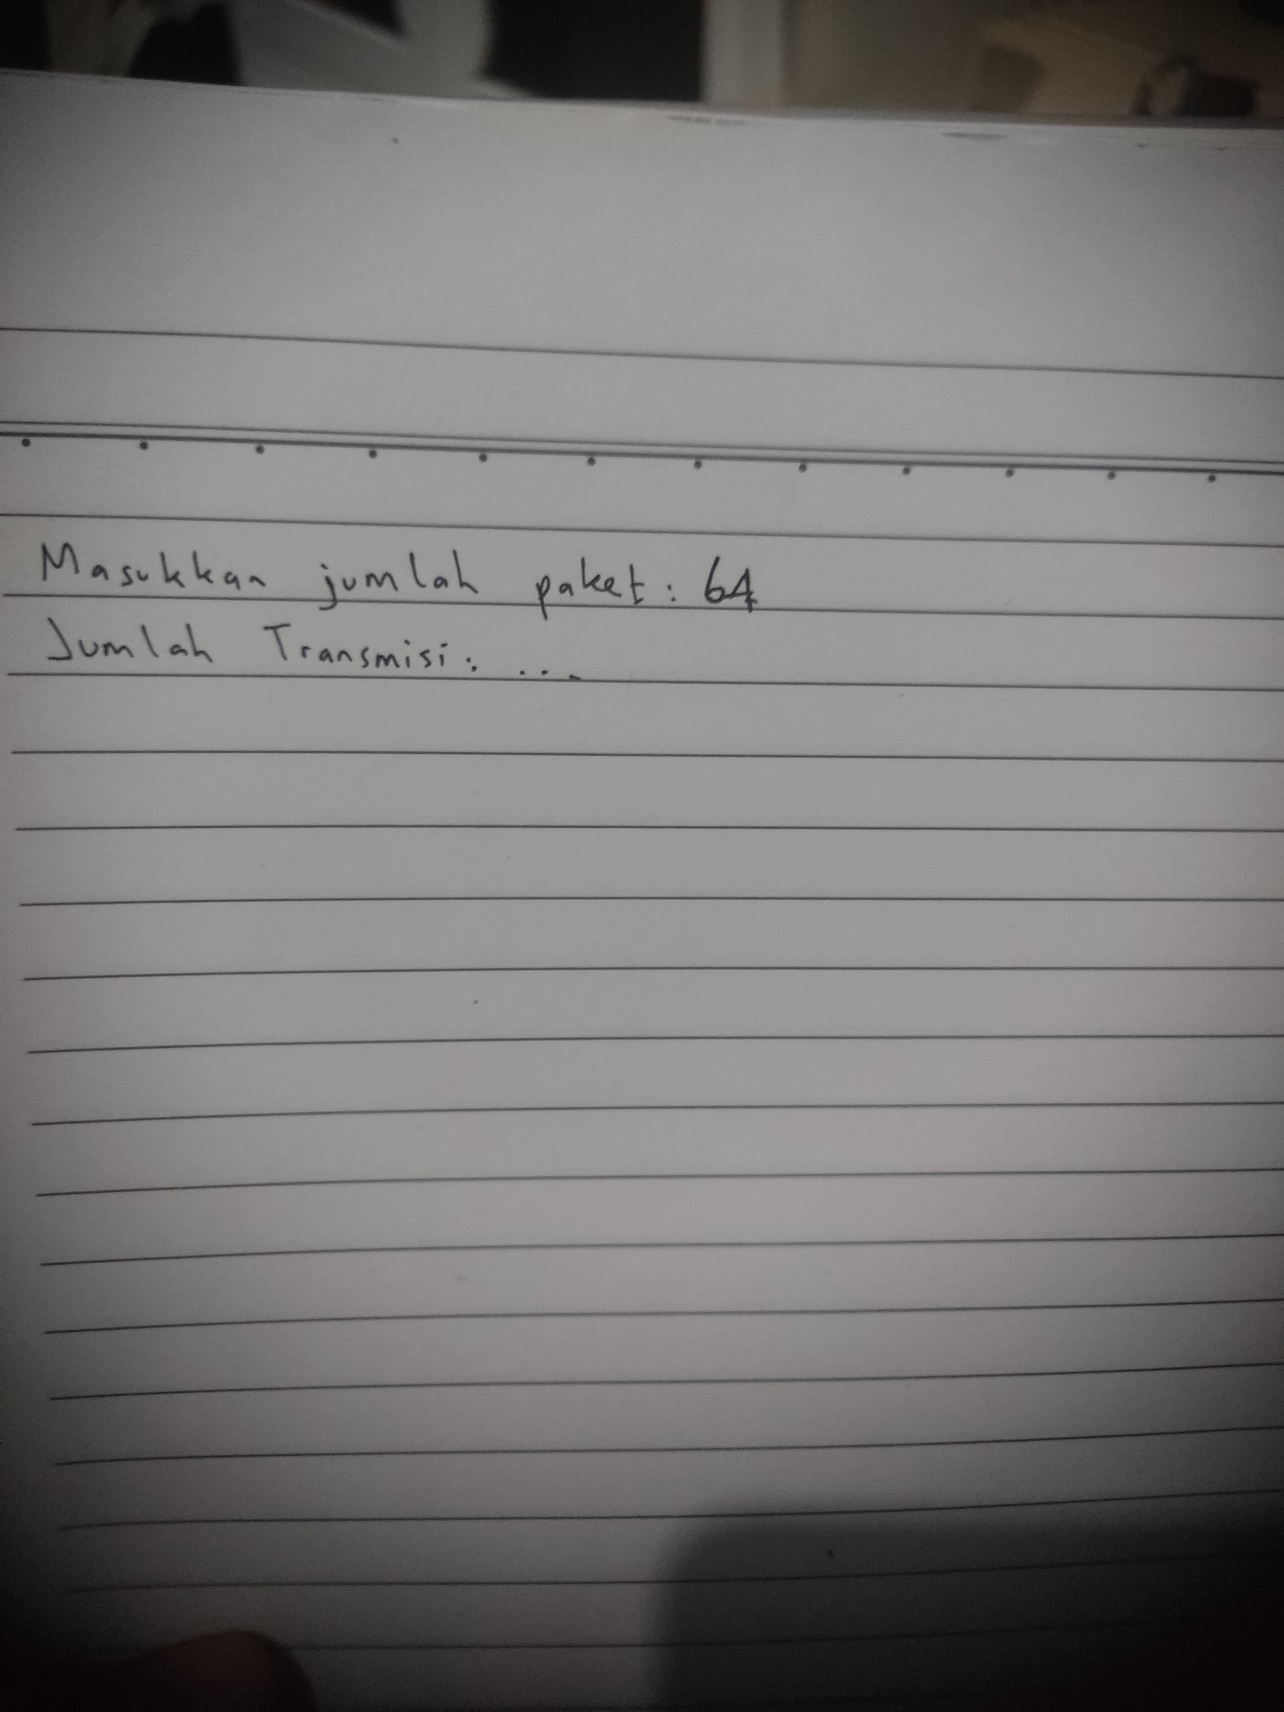 Masukkan jumlah paket : 64
Jumlah Transmisi : ...